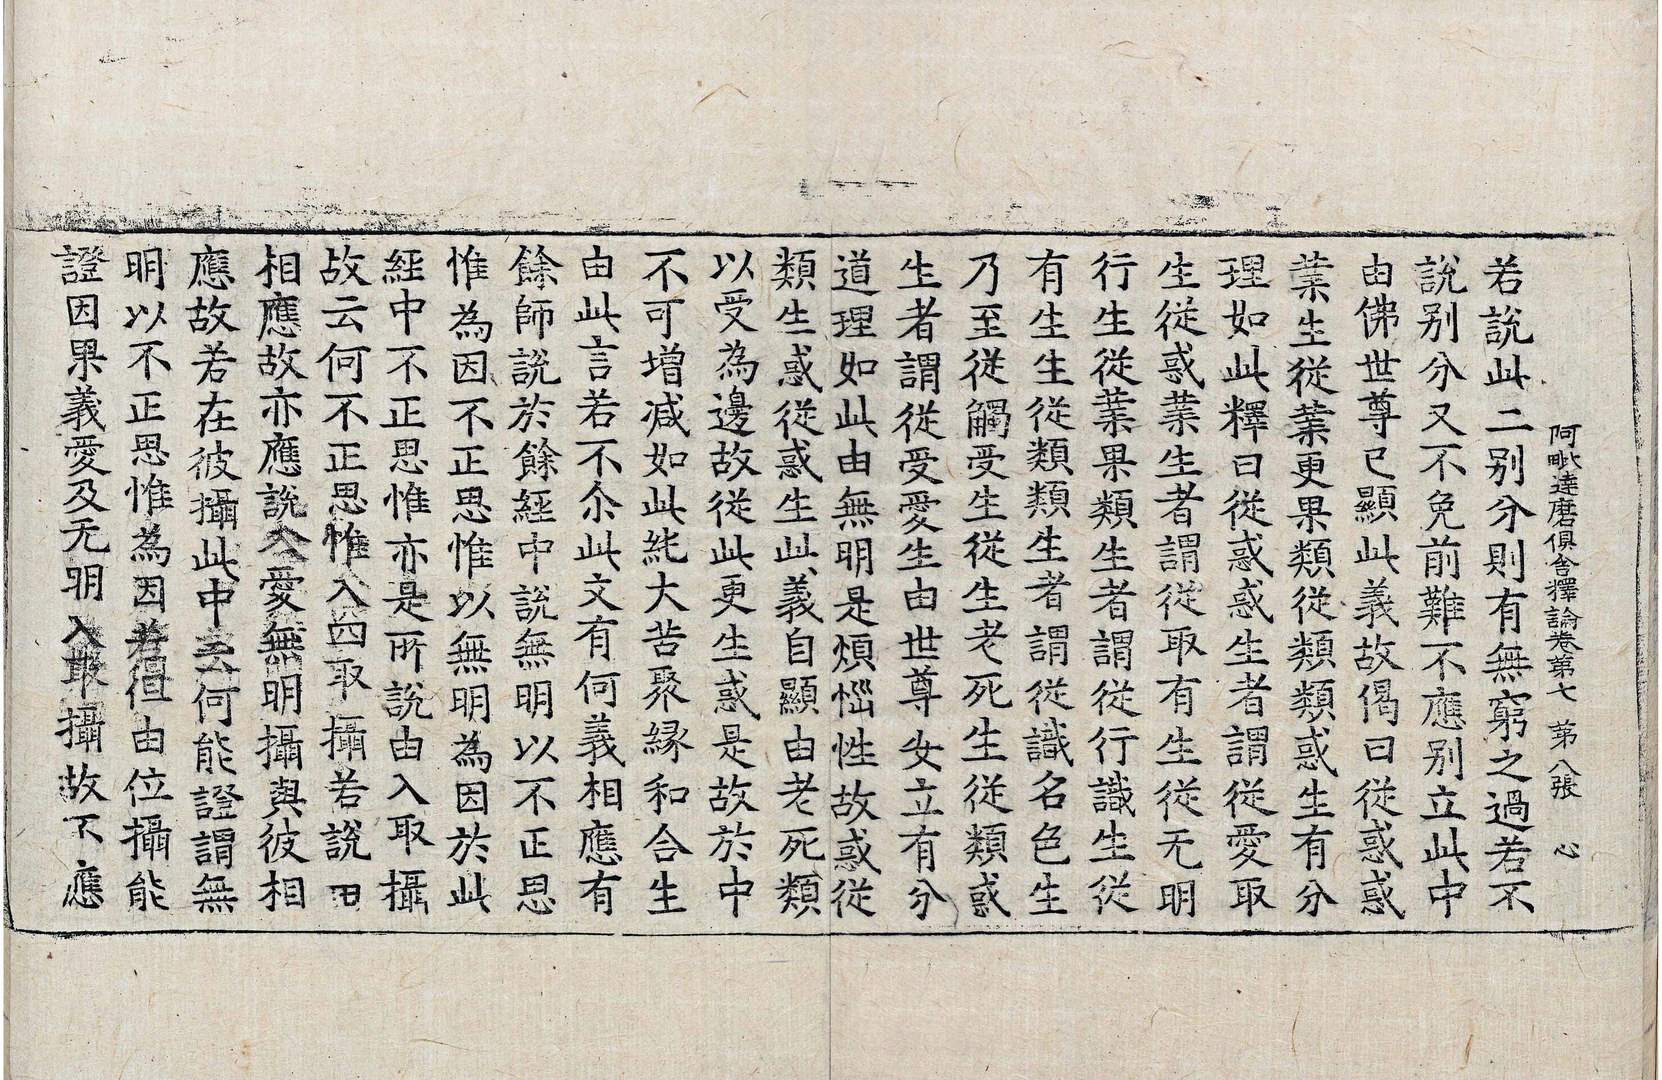 阿毗達磨俱舍釋論卷第七　第八張　心
若說此二別分則有無窮之過若不
說別分又不免前難不應別立此中
由佛世尊已顯此義故偈曰從惑惑
業生從業更果類從類類惑生有分
理如此釋曰從惑惑生者謂從愛取
生從惑業生者謂從取有生從无明
行生從業果類生者謂從行識生從
有生生從類類生者謂從識名色生
乃至從觸受生從生老死生從類惑
生者謂從受愛生由世尊安立有分
道理如此由無明是煩惱性故惑從
類生惑從惑生此義自顯由老死類
以受為邊故從此更生惑是故於中
不可增减如此純大苦聚緣和合生
由此言若不尒此文有何義相應有
餘師說於餘經中說無明以不正思
惟為因不正思惟以無明為因於此
經中不正思惟亦是所說由入取攝
故云何不正思惟入四取攝若說由
相應故亦應說入愛無明攝與彼相
應故若在彼攝此中云何能證謂無
明以不正思惟為因若但由位攝能
證因果義愛及无明入取攝故不應